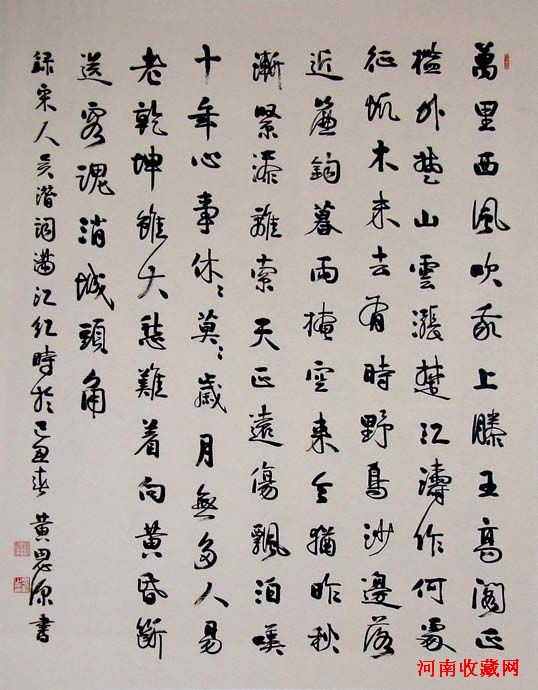 萬里西風吹我上滕王高阁正
檻外楚山雲漲楚江濤作何處
征帆木末去有時野鳥沙邊落
近簾鉤暮雨掩空來今猶昨秋
漸緊添離索天正遠傷飄泊嘆
十年心事休々莫々歲月無多人易
老乾坤雖大愁難着向黄昏斷
送客魂消城頭角
録宋人吴潛詞滿江红時於己丑春黄思源書
河南收藏网